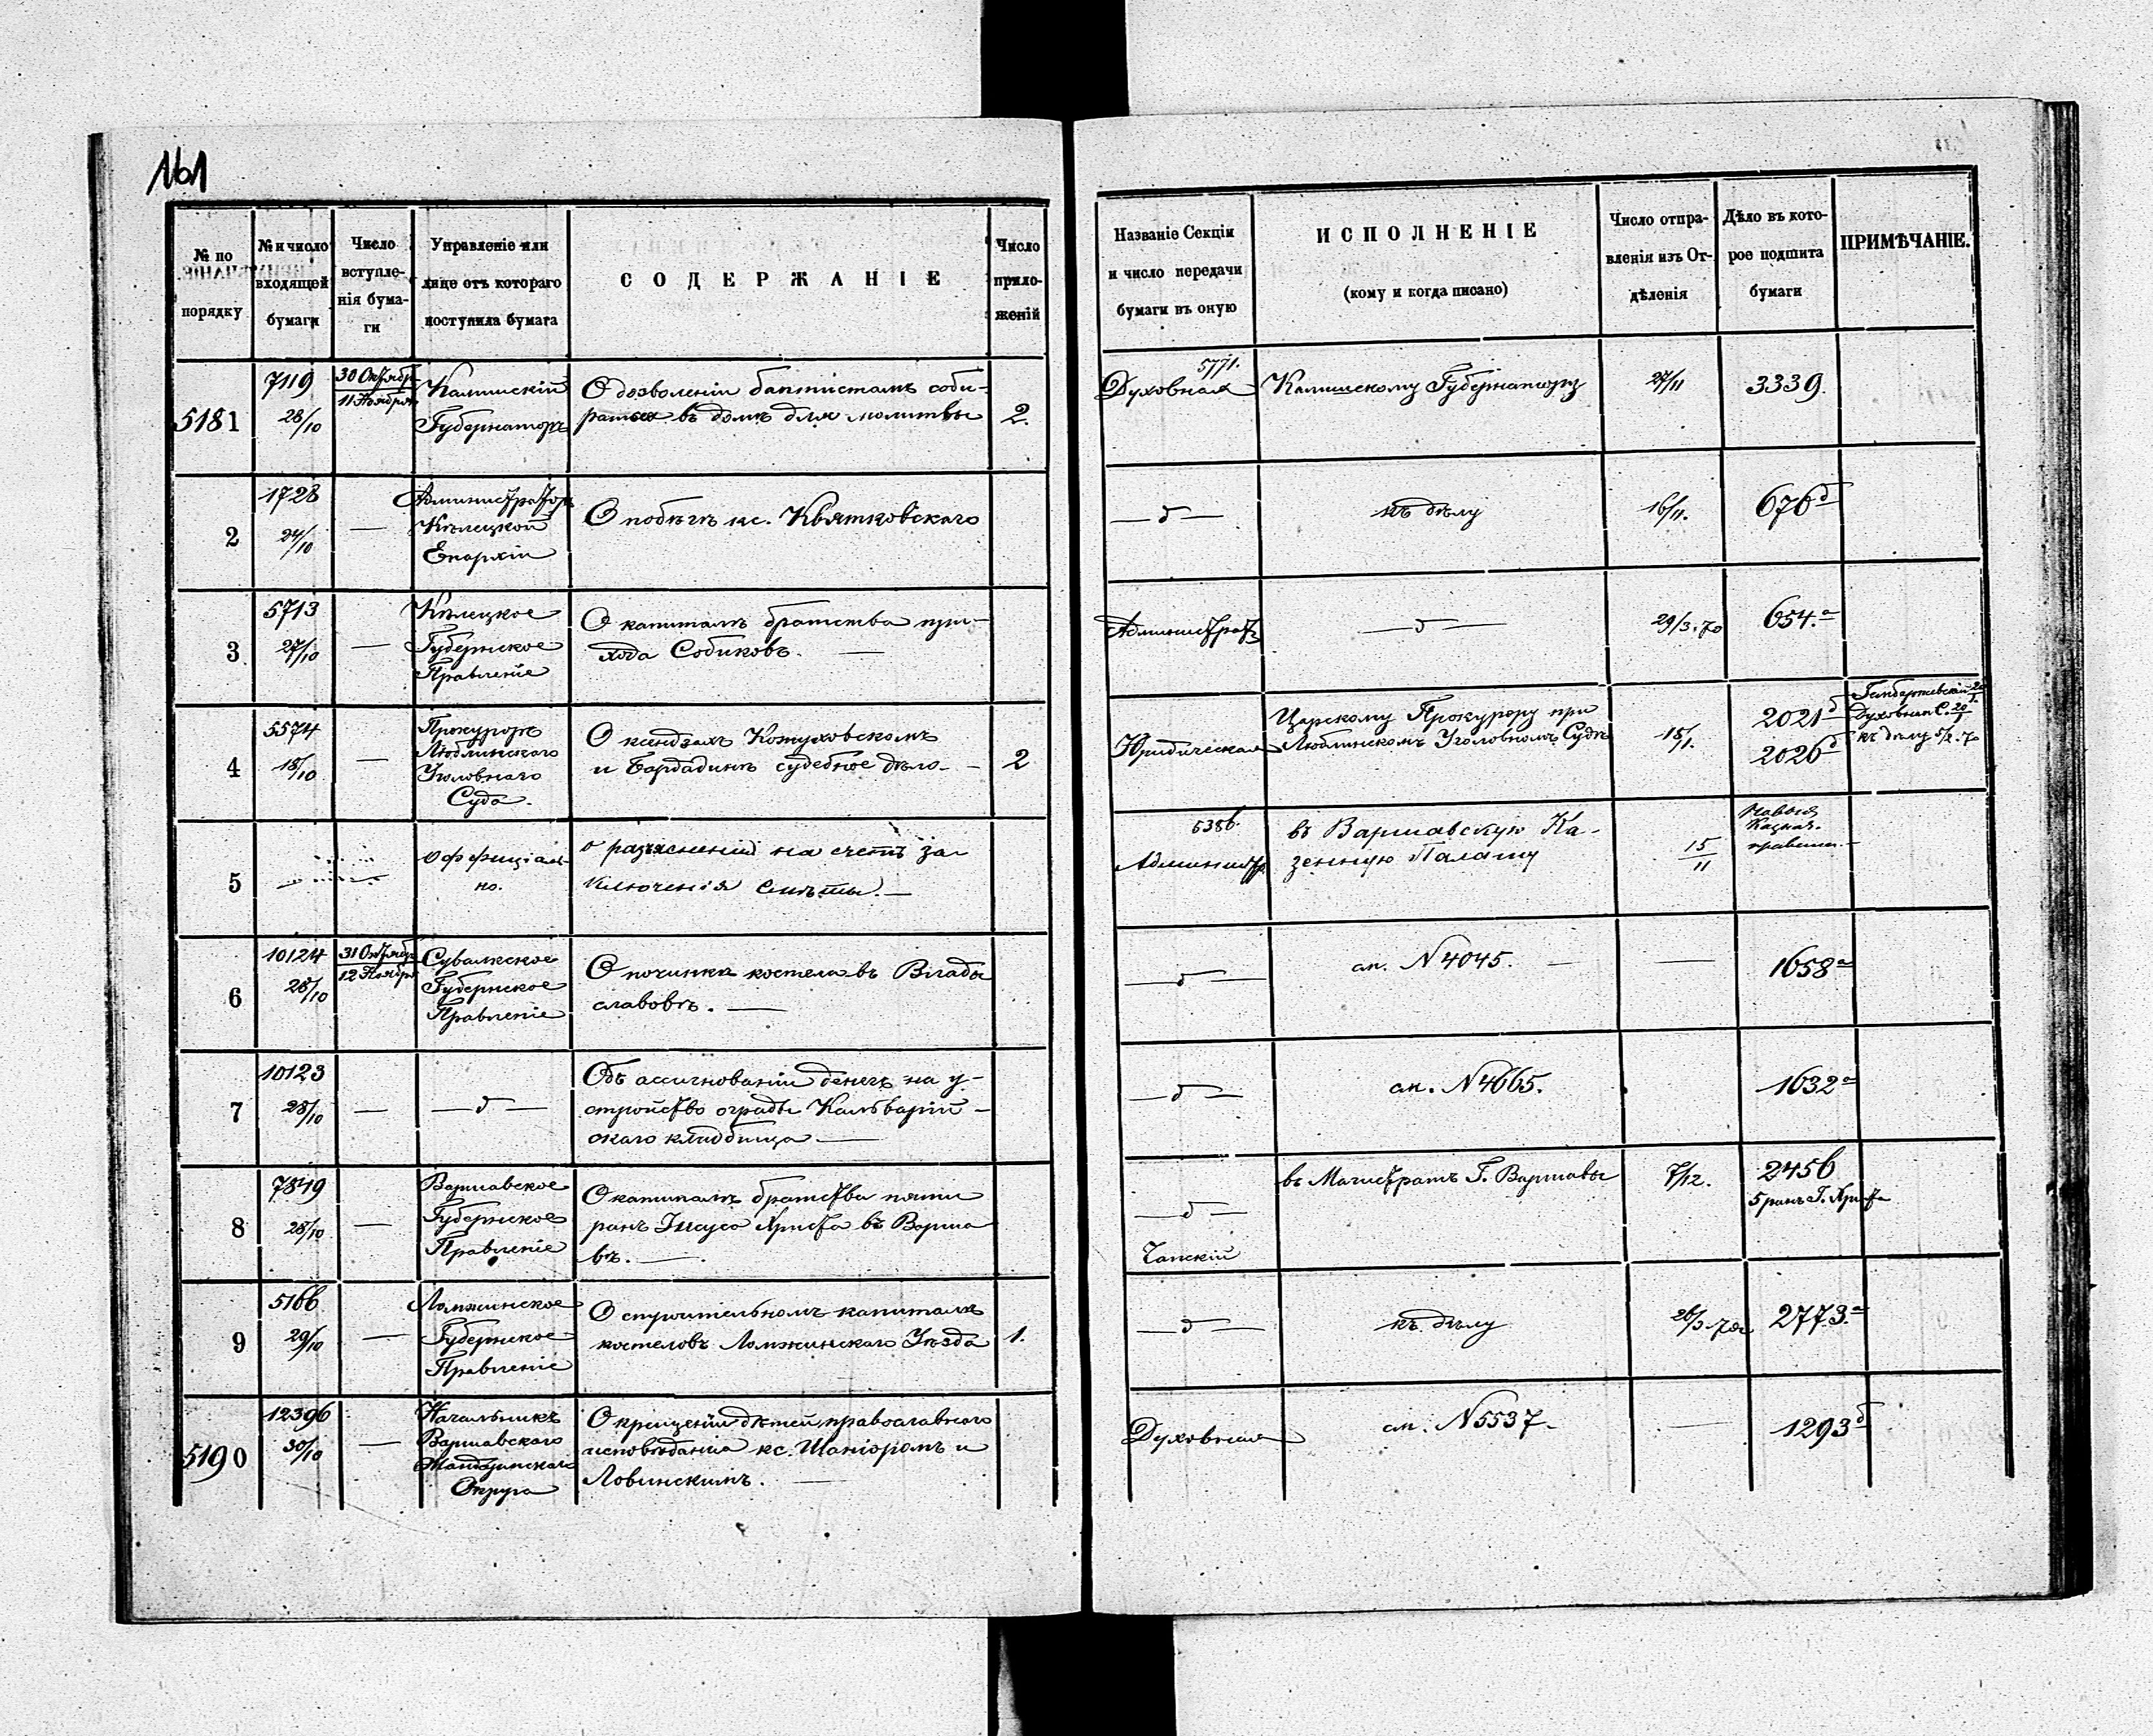 161
№ по порядку
№ и число входящей бумаги
Число вступленія бумаги
Управленіе или лице отъ котораго поступила бумага
СОДЕРЖАНІЕ
Число приложеній
Названіе Секціи и число передачи бумаги въ оную
ИСПОЛНЕНІЕ
(кому и когда писано)
Число отправленія изъ Отдѣленія
Дѣло въ которое подшита бумаги
ПРИМѢЧАНІЕ.
5181
7119
28/10
30 Октябр
11 Ноября
Калишскій
Губернаторъ
О дозволеніи баптистамъ соби-
раться въ домъ для молитвы
2.
5771.
Духовная
Калишскому Губернатору
27/11
3339.
2
1728
24/10
—
Администраторъ
Кѣлецкой
Епархіи
О побѣгѣ кс. Квятковскаго
— д —
къ дѣлу
16/11.
676 б
3
5713
27/10
—
Кѣлецкое
Губернское
Правленіе
О капиталѣ братства при-
хода Собиковъ. —
Администрат
— д —
29/3. 70
654. а
4
5574
18/10
—
Прокуроръ
Люблинскаго
Уголовнаго
Суда.
О ксендзахъ Кожуховскомъ
и Бардадинѣ судебное дѣло. -
2
Юридическая
Царскому Прокурору при
Люблинскомъ Уголовномъ Судѣ
15/1.
2021 б
2026 б
Духовная С. 20/1
къ дѣлу 5/2. 70
5
оффиціаль-
но.
о разъясненіи на счетъ за-
ключенія Смѣты. —
5386.
Администр
въ Варшавскую Ка-
зенную Палату
15/11
6
10124
28/10
31 Октябр
12 Ноября
Сувалкское
Губернское
Правленіе
О починкѣ костела въ Влады
славовѣ. —
— д —
см. N 4045. —
—
1658 а
7
10123
28/10
—
— д —
Объ ассигнованіи денегъ на у-
стройство ограды Кальварій-
скаго кладбища —
— д —
см. N 4665.
1632 а
8
7849
28/10
—
Варшавское
Губернское
Правленіе
О капиталѣ братства пяти
ранъ Іисуса Христа въ Варша
вѣ. —
— д —
Чапскій
въ Магистратъ Г. Варшавы
7/12.
2456
5 ранъ Г. Христа
9
5166
29/10
—
Ломжинское
Губернское
Правленіе
О строительномъ капиталѣ
костеловъ Ломжинскаго Уѣзда
1.
— д —
къ дѣлу
2773. а
5190
12396
30/10
—
Начальникъ
Варшавскаго
Жандармскаго
Округа
О крещеніи дѣтей православнаго
исповѣданія кс. Шаніоромъ и
Ловинскимъ. —
Духовная
см. N 5537.
—
1293 б